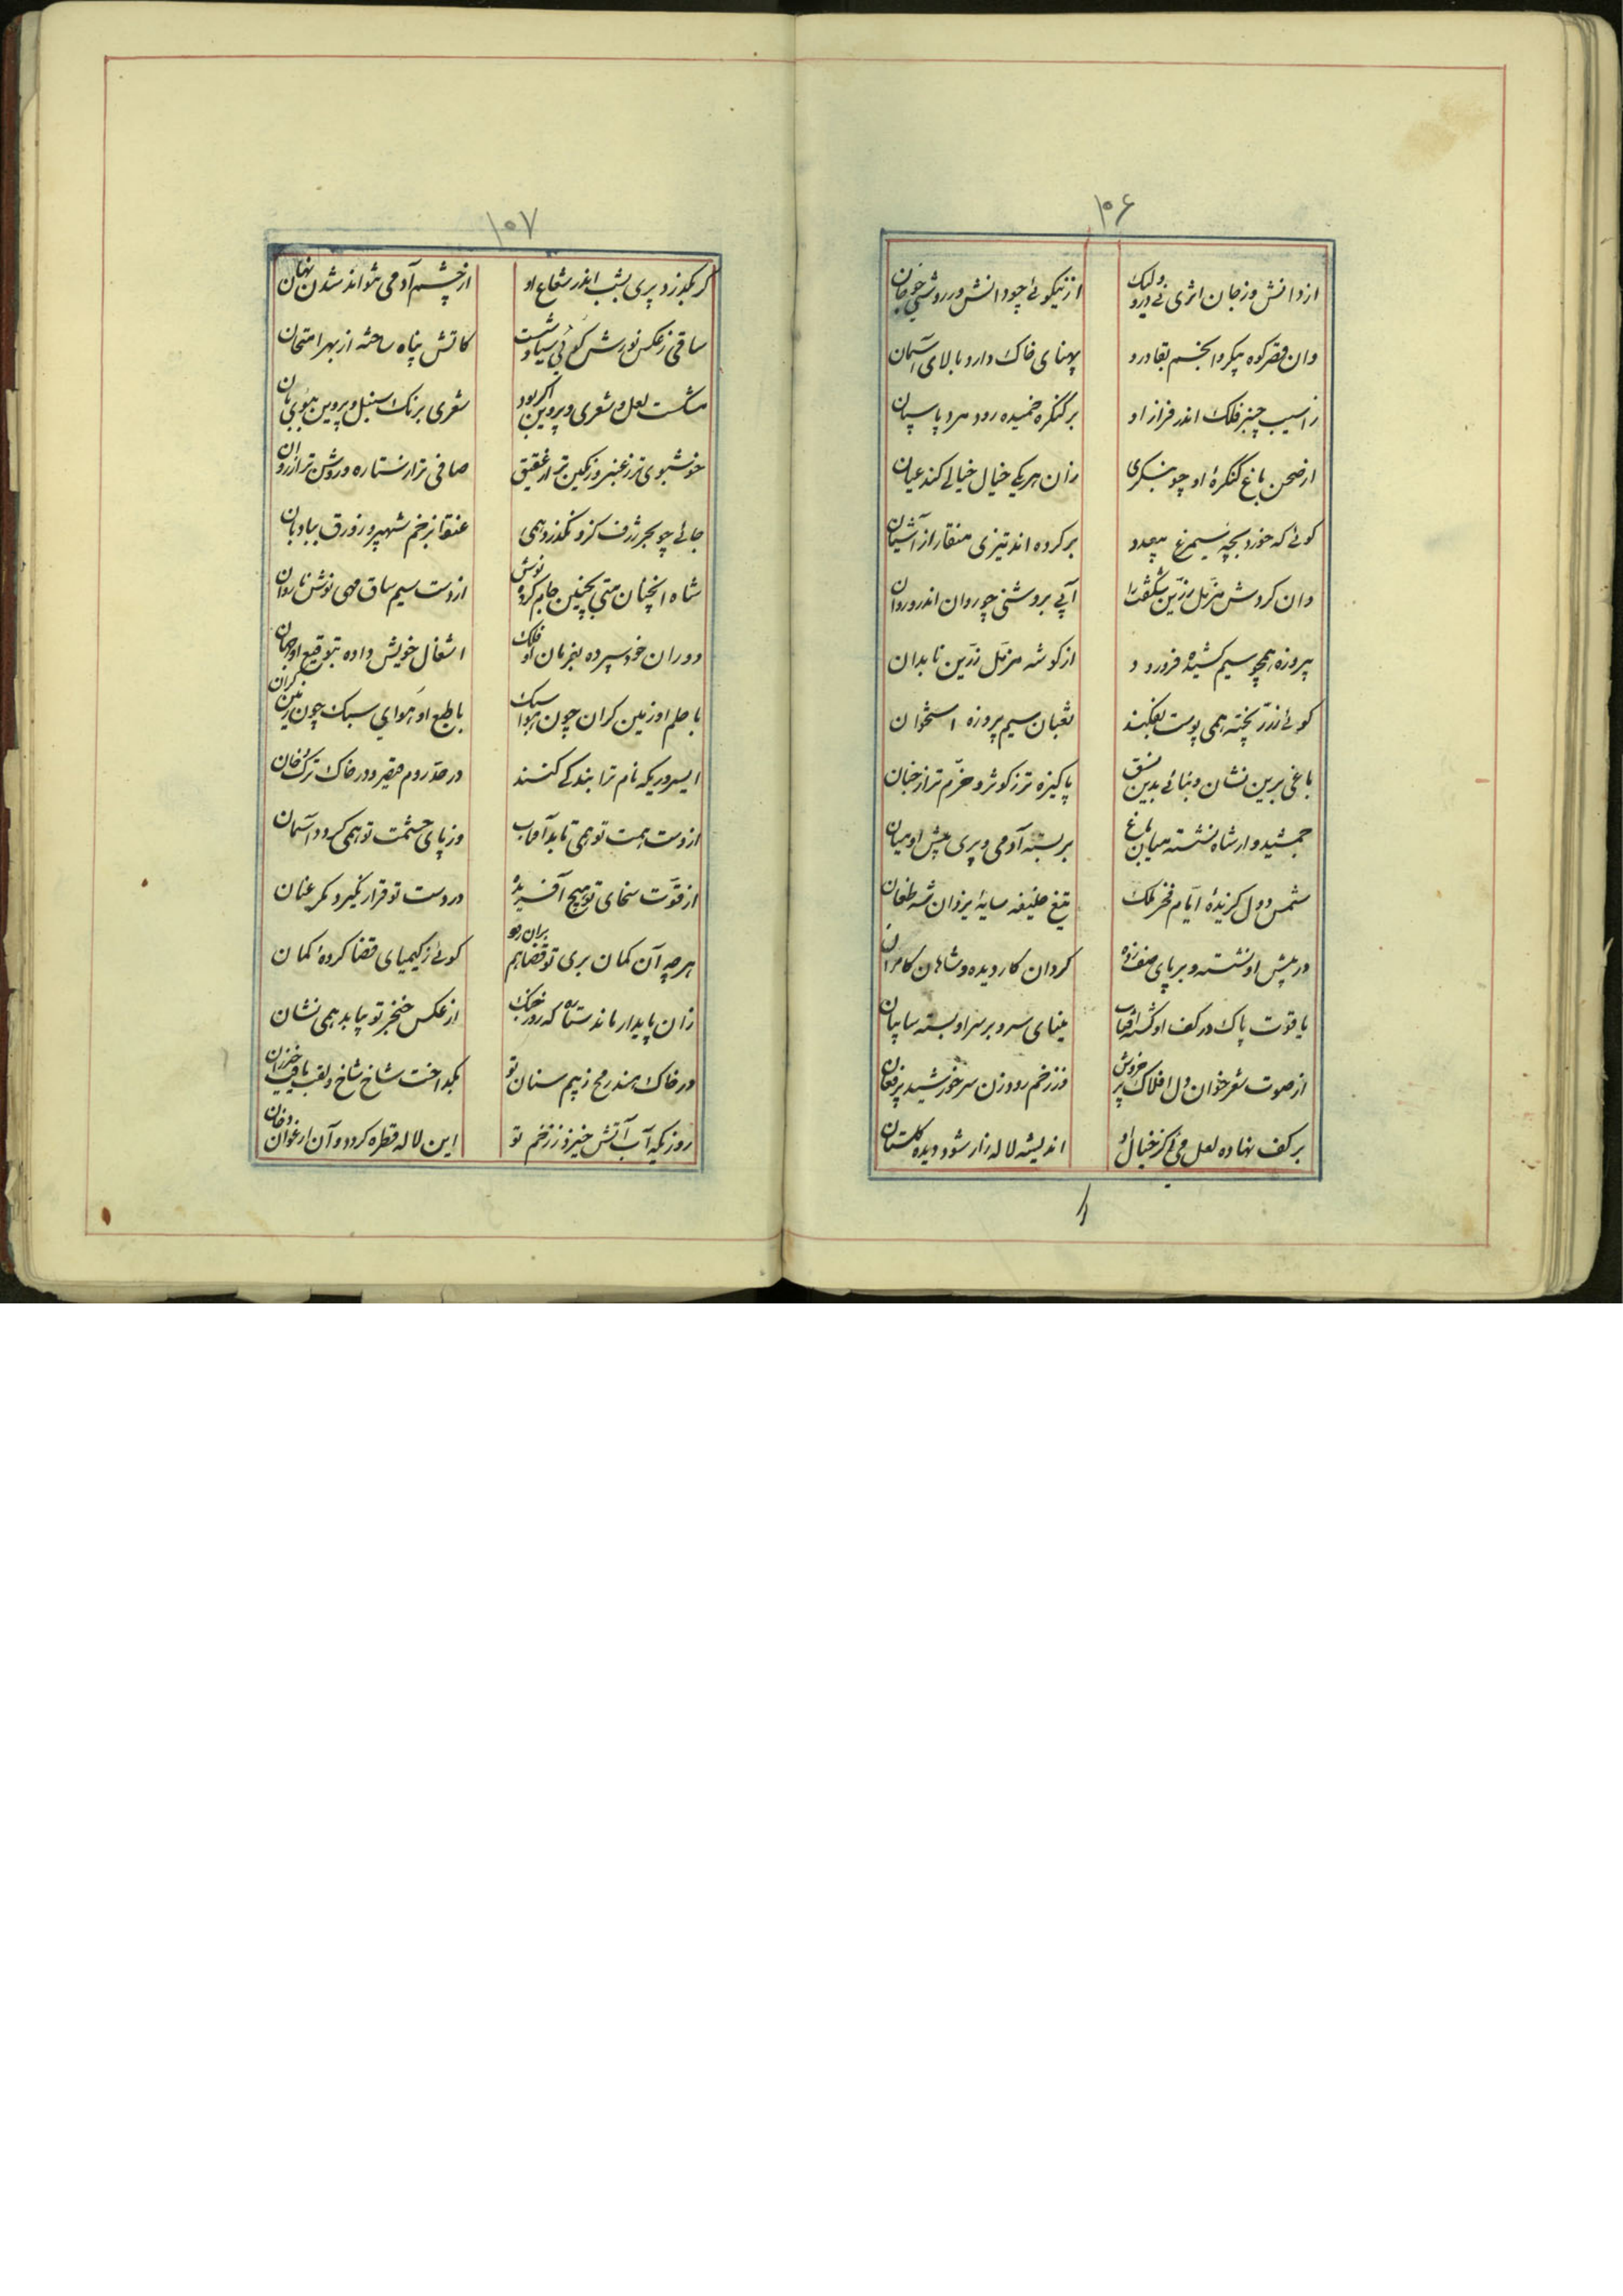 ۱۰۶
ازدانش وزجان اثری نی درو ولیک
از نیکوئی چو دانش ودر روشنی چو جان
وان قصر کوه پیکر وانجم بقا درو
پهنای خاک دارد بالای آسمان
زاسیب چنبر فلک اندر فراز او
بر کنگره خمیده رود مرد پاسبان
از صحن باغ کنگرهٔ او چو بنگری
زان هر یکی خیال خیالی کند عیان
گوئی که خورد بچه سیمرغ بیعدد
بر کرده اند تیزی منقار از آشیان
وان گردش مزمل زرین شگفت را
آبی بروشنی چو روان اندرو روان
پیروزه همچو سیم کشیده فرو رود
از گوشه مزمل زرین نابدان
گوئی ز زر پخته همی پوست بفکند
ثعبان سیم پیروزه استخوان
باغی برین نشان و بنائی بدین نسق
پاکیزه تر ز کوثر و خرم تر از جنان
جمشیدوار شاه نشسته میان باغ
بر بسته آدمی و پری پیش او میان
شمس دول گزیدهٔ ایام فخر ملک
تیغ خلیفه سایهٔ یزدان شه طغان
در پیش او نشسته و بر پای صف زده
گردان کار دیده و شاهان کامران
یاقوت پاک در کف او گشته آفتاب
مینای سرو بر سر او بسته سایبان
از صوت شعر خوان دل افلاک پر خروش
وز زخم رود زن سر خورشید پر فغان
بر کف نهاده لعل می کز خیال او
اندیشه لاله زار شود دیده گلستان
۱۰۷
گر بگذرد پری بشب اندر شعاع او
از چشم آدمی نتواند شدن نهان
ساقی ز عکس نورش گوئی سیاوشست
کاتش پناه ساخته از بهر امتحان
مشکست لعل و شعری و پروین اگر بود
شعری برنک سنبل و پروین ببوی بان
خوشبوی تر ز عنبر و رنگین تر از عقیق
صافی تر از ستاره و روشن تر از روان
جائی چو بحر ژرف کزو نگذرد همی
عنقا بزخم شهپر و زورق ببادبان
شاه انچنان بتی بچنین جام کرده نوش
از دست سیم ساق مهی نوش ناروان
دوران خود سپرده بفرمان او فلک
اشغال خویش داده بتوقیع او جهان
با حلم او زمین گران چون هوا سبک
با طبع او هوای سبک چون زمین گران
ایسروریکه نام ترا بندگی کنند
در حد روم قیصر و در خاک ترک خان
از دست همت تو همی تابد آفتاب
وز پای حشمت تو همی گردد آسمان
از قوت سخای تو هیچ آفریده
در دست تو قرار نگیرد مگر عنان
هر چه آن گمان بری تو قضا هم بران رود
گوئی ز کیمیای قضا کردهٔ کمان
زان پایدار ماند ستاره که روز جنک
از عکس خنجر تو بیابد همی نشان
در خاک هند رمح ز بیم سنان تو
بگداخت شاخ شاخ و لقب یافت خیزران
روزیکه آب آتش خیزد ز زخم تو
این لاله قطره گردد و آن ارغوان دخان